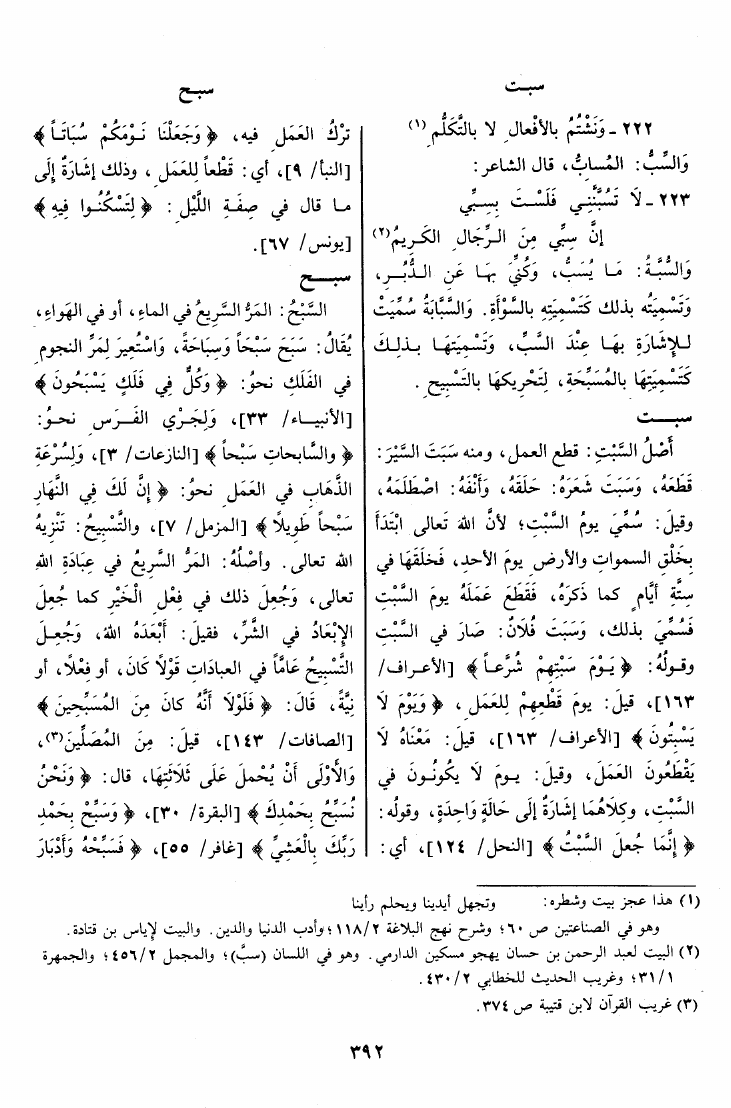 سبت
سبح
٢٢٢ ـ وَنَشْتُمُ بالأفْعالِ لا بالتَّكَلُّمِ(١)
وَالسِّبُّ: المُسابُّ، قال الشاعر:
٢٢٣ ـ لَا تَسُبَّنَّنِي فَلَسْتَ بِسِبِّي
إنَّ سِبِّي مِنَ الرِّجَالِ الكَرِيمُ(٢)
وَالسُّبَّةُ: مَا يُسَبُّ، وَكُنِّيَ بِهَا عَنِ الدُّبُرِ،
وَتَسْمِيَتُه بذلك كَتَسْمِيَتِهِ بالسَّوْأَةِ. وَالسَّبَّابَةُ سُمِّيَتْ
لِلإشَارَةِ بِهَا عِنْدَ السَّبِّ، وَتَسْمِيَتُهَا بِذلِكَ
كَتَسْمِيَتِهَا بالمُسَبِّحَةِ، لِتَحْرِيكِهَا بالتَّسْبِيحِ.
سبت
أَصْلُ السَّبْتِ: قطع العمل، ومنه سَبَتَ السَّيْرَ:
قَطَعَهُ، وَسَبَتَ شَعَرَهُ: حَلَقَهُ، وَأَنْفَهُ: اصْطَلَمَهُ،
وقيلَ: سُمِّيَ يومُ السَّبْتِ؛ لأنَّ اللهَ تعالى ابْتَدَأَ
بِخَلْقِ السموات والأرضِ يومَ الأحدِ، فَخَلَقَهَا في
سِتَّةِ أيَّامٍ كما ذَكَرَهُ، فَقَطَعَ عَمَلَهُ يومَ السَّبْتِ
فَسُمِّيَ بذلك، وَسَبَتَ فُلَانٌ: صَارَ في السَّبْتِ
وقولُهُ: ﴿ يَوْمَ سَبْتِهِمْ شُرَّعاً ﴾ [الأعراف/
١٦٣]، قيلَ: يومَ قَطْعِهِمْ لِلعَمَلِ، ﴿ وَيَوْمَ لَا
يَسْبِتُونَ ﴾ [الأعراف/ ١٦٣]، قيلَ: مَعْنَاهُ لَا
يَقْطَعُونَ العَمَلَ، وقيلَ: يومَ لَا يكونُونَ في
السَّبْتِ، وكلاهُمَا إشَارَةٌ إلَى حَالَةٍ وَاحِدَةٍ، وقولُه:
﴿ إنَّمَا جُعلَ السَّبْتُ ﴾ [النحل/ ١٢٤]، أي:
تركُ العَمَلِ فيه، ﴿ وَجَعَلْنَا نَوْمَكُمْ سُبَاتاً ﴾
[النبأ/ ٩]، أي: قَطْعاً للعَمَلِ، وذلك إشَارَةٌ إلَى
ما قال في صِفَةِ اللَّيْلِ: ﴿ لِتَسْكُنُوا فِيهِ ﴾
[يونس/ ٦٧].
سبح
السَّبْحُ: المَرُّ السَّرِيعُ في الماءِ، أو في الهَواءِ،
يُقَالُ: سَبَحَ سَبْحاً وَسِبَاحَةً، وَاسْتُعِيرَ لِمَرِّ النجومِ
في الفَلَكِ نحوُ: ﴿ وَكُلٌّ فِي فَلَكٍ يَسْبَحُونَ ﴾
[الأنبياء/ ٣٣]، وَلِجَرْي الفَرَسِ نحوُ:
﴿ والسَّابحاتِ سَبْحاً ﴾ [النازعات/ ٣]، وَلِسُرْعَةِ
الذَّهابِ في العَمَلِ نحوُ: ﴿ إنَّ لَكَ فِي النَّهارِ
سَبْحاً طَوِيلاً ﴾ [المزمل/ ٧]، والتَّسْبِيحُ: تَنْزِيهُ
الله تعالى. وأصْلُهُ: المَرُّ السَّرِيعُ في عِبَادَةِ اللهِ
تعالى، وَجُعِلَ ذلك في فِعْلِ الْخَيْرِ كما جُعِلَ
الإبْعَادُ في الشَّرِّ، فقيلَ: أَبْعَدَهُ اللهُ، وَجُعِلَ
التَّسْبِيحُ عَامّاً في العبادَاتِ قَوْلاً كَانَ، أو فِعْلاً، أو
نِيَّةً، قَالَ: ﴿ فَلَوْلاَ أَنَّهُ كانَ مِنَ المُسَبِّحِينَ ﴾
[الصافات/ ١٤٣]، قيلَ: مِنَ المُصَلِّينَ(٣)،
وَالأوْلَى أنْ يُحْمَلَ عَلَى ثَلَاثَتِهَا، قال: ﴿ وَنَحْنُ
نُسَبِّحُ بِحَمْدِكَ ﴾ [البقرة/ ٣٠]، ﴿ وَسَبِّحْ بِحَمْدِ
رَبِّكَ بِالْعَشِيِّ ﴾ [غافر/ ٥٥]، ﴿ فَسَبِّحْهُ وَأَدْبَارَ
(١) هذا عجز بيت وشطره: وتجهل أيدينا ويحلم رأينا
وهو في الصناعتين ص ٦٠؛ وشرح نهج البلاغة ١١٨/٢؛ وأدب الدنيا والدين. والبيت لإياس بن قتادة.
(٢) البيت لعبد الرحمن بن حسان يهجو مسكين الدارمي. وهو في اللسان (سبَّ)؛ والمجمل ٤٥٦/٢؛ والجمهرة
٣١/١؛ وغريب الحديث للخطابي ٤٣٠/٢.
(٣) غريب القرآن لابن قتيبة ص ٣٧٤.
٣٩٢